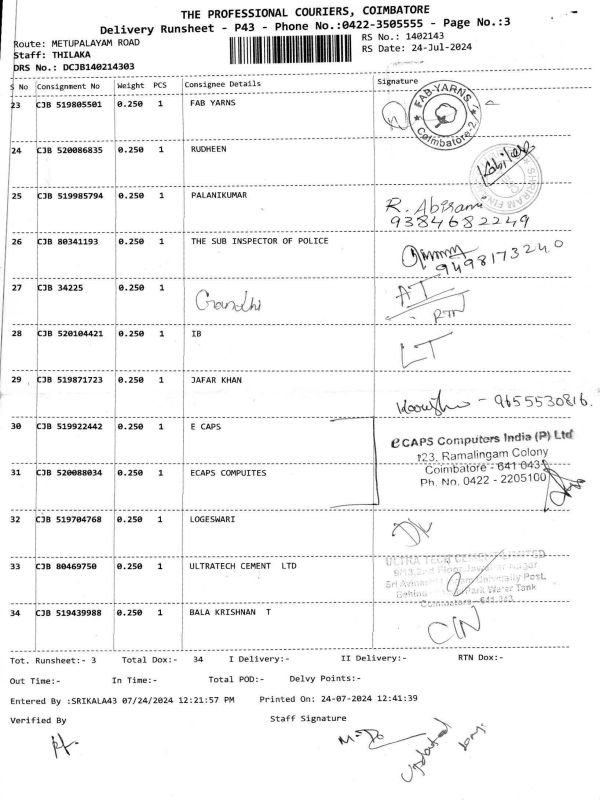 THE PROFESSIONAL COURIERS, COIMBATORE
Delivery Runsheet - P43 - Phone No.:0422-3505555 - Page No.:3
Route: METUPALAYAM ROAD
RS No.: 1402143
Staff: THILAKA
RS Date: 24-Jul-2024
DRS No.: DCJB140214303
S No Consignment No Weight PCS Consignee Details Signature
23 CJB 519805501 0.250 1 FAB YARNS
FAB-YARNS
Coimbatore-2
24 CJB 520086835 0.250 1 RUDHEEN
SHRIRAM FIN
25 CJB 519985794 0.250 1 PALANIKUMAR
R. Abirami
9384682249
26 CJB 80341193 0.250 1 THE SUB INSPECTOR OF POLICE
9498173240
27 CJB 34225 0.250 1 Gandhi
AT
RTN
28 CJB 520104421 0.250 1 IB
LT
29 CJB 519871723 0.250 1 JAFAR KHAN
- 9655530816.
30 CJB 519922442 0.250 1 E CAPS
eCAPS Computers India (P) Ltd
123, Ramalingam Colony
Coimbatore - 641 043
Ph. No. 0422 - 2205100
31 CJB 520088034 0.250 1 ECAPS COMPUITES
32 CJB 519704768 0.250 1 LOGESWARI
DL
33 CJB 80469750 0.250 1 ULTRATECH CEMENT LTD
ULTRA TECH CEMENT LIMITED
Floor, Nagar
Post,
Behind Park Water Tank
Coimbatore - 641 043
34 CJB 519439988 0.250 1 BALA KRISHNAN T
C/N
Tot. Runsheet:- 3 Total Dox:- 34 I Delivery:- II Delivery:- RTN Dox:-
Out Time:- In Time:- Total POD:- Delvy Points:-
Entered By :SRIKALA43 07/24/2024 12:21:57 PM Printed On: 24-07-2024 12:41:39
Verified By Staff Signature
Updated